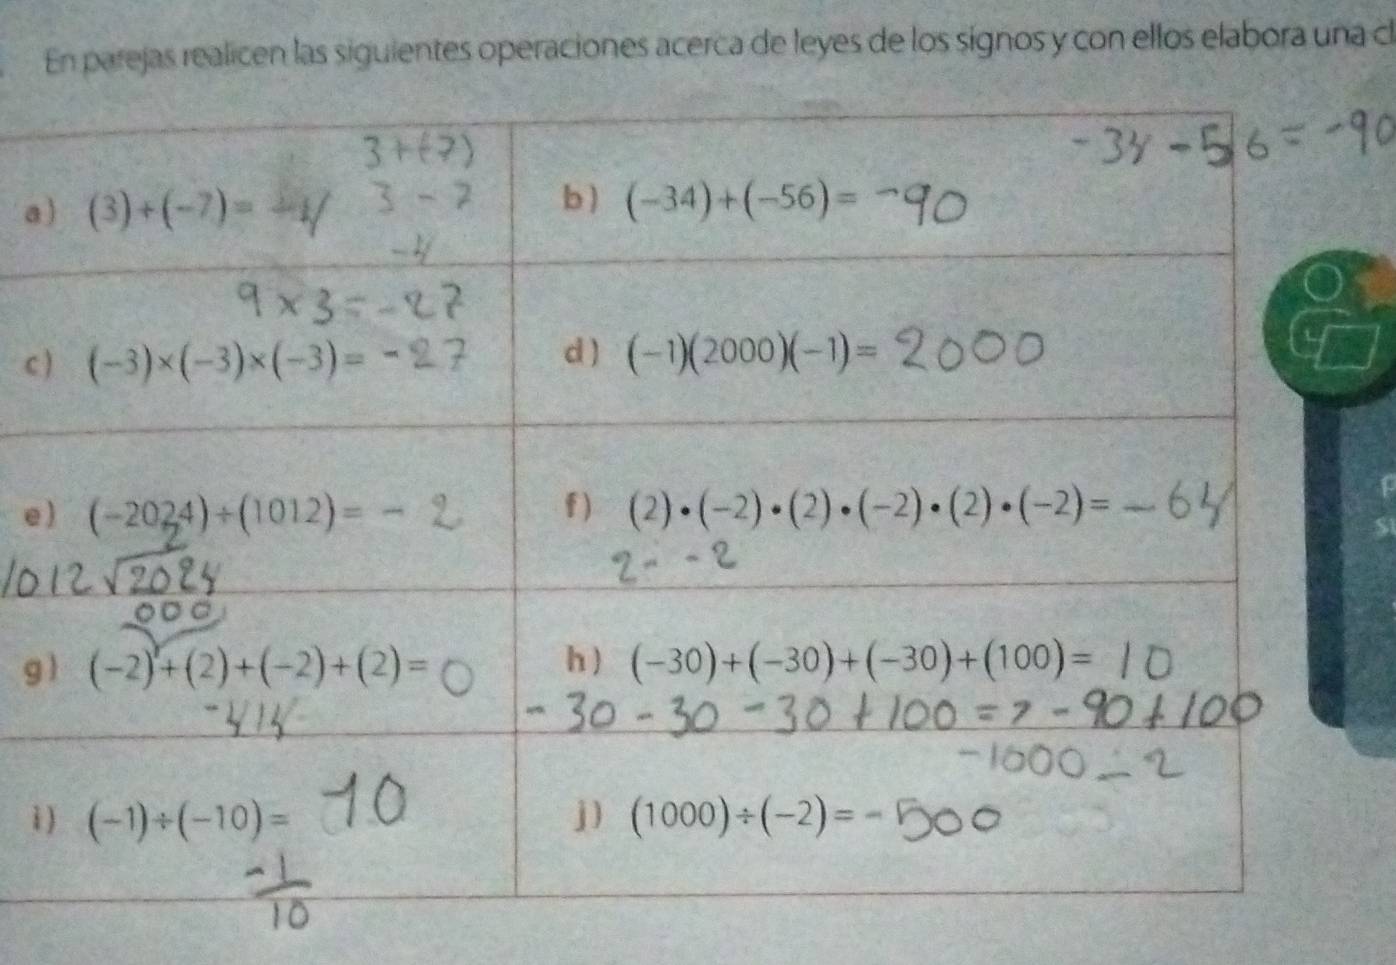 En parejas realicen las siguientes operaciones acerca de leyes de los signos y con ellos elabora una
3+(-7)
-34 -56 = -90
a) (3)+(-7)= -4 3 - 7
b) (-34)+(-56)= -90
-4
9 × 3 = -27
c) (-3)×(-3)×(-3)= -27
d) (-1)(2000)(-1)= 2000
e) (-2024)÷(1012)= - 2
f) (2)•(-2)•(2)•(-2)•(2)•(-2)= - 64
2
1012 √2024
000
2- -2
g) (-2)+(2)+(-2)+(2)= 0
-4+4
h) (-30)+(-30)+(-30)+(100)= 10
-30 -30 -30 +100 = 7 -90 +100
-1000 ÷ 2
i) (-1)÷(-10)= -10
-1
10
j) (1000)÷(-2)= -500